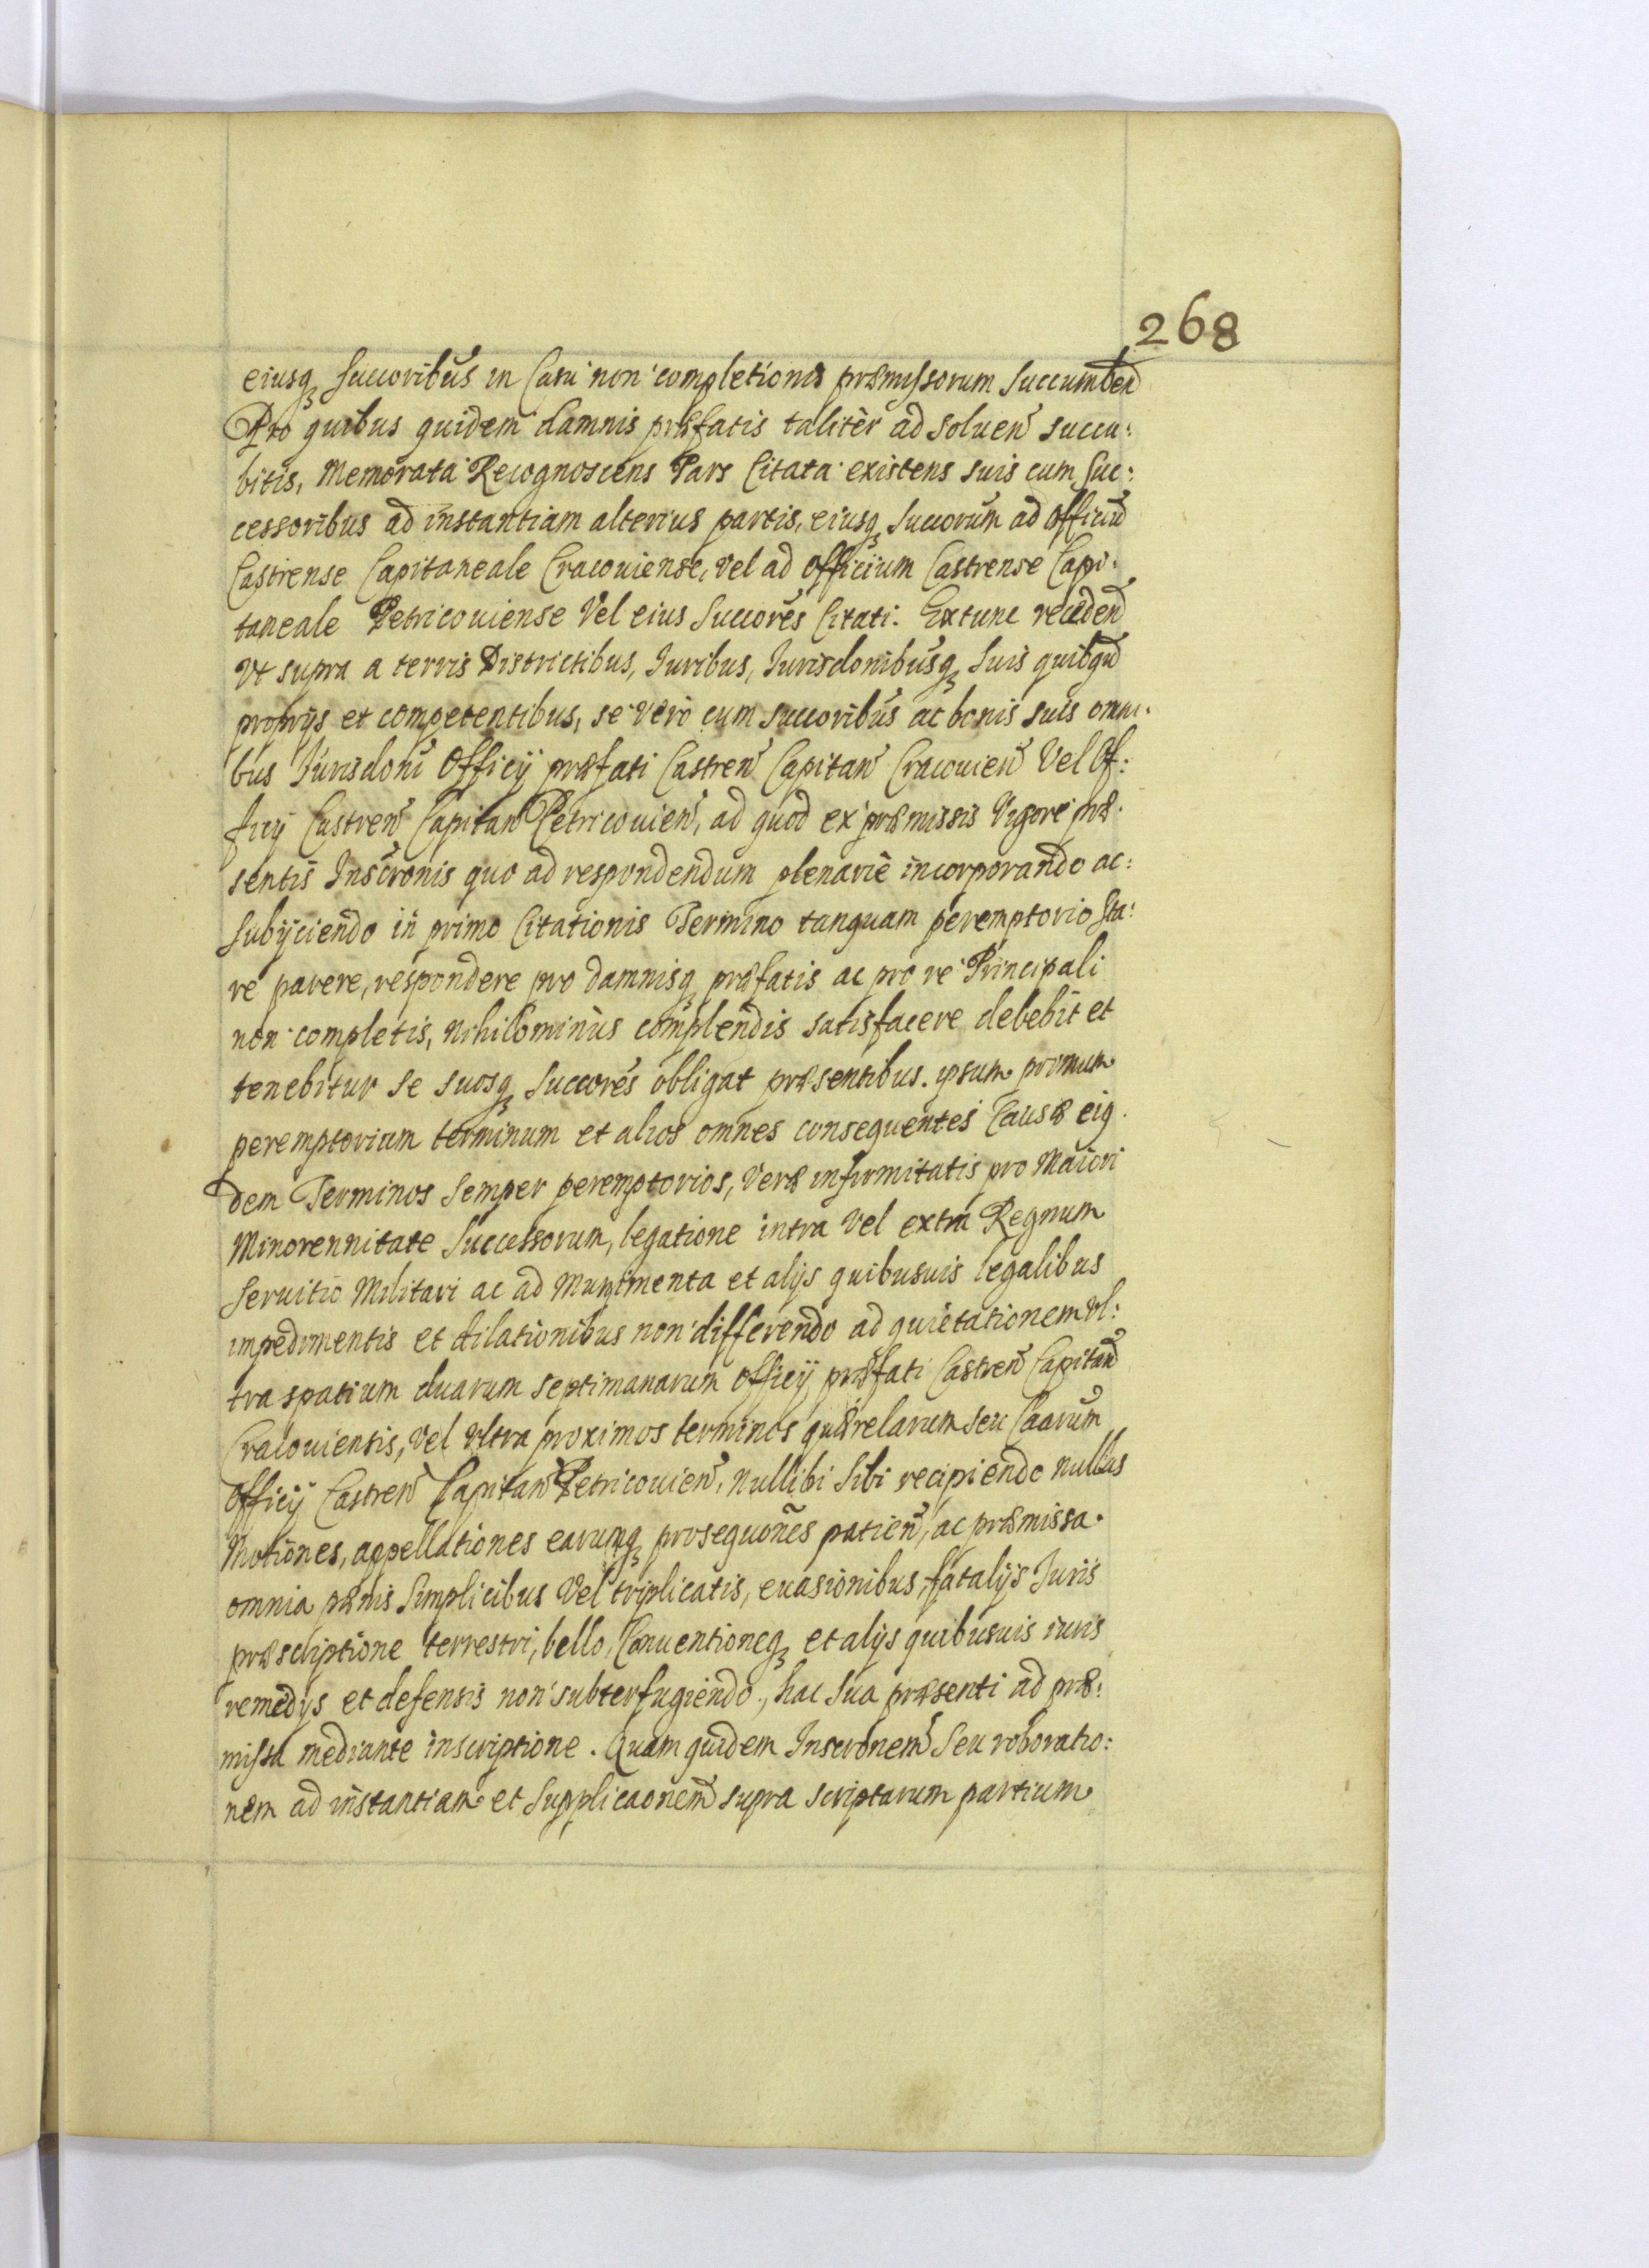 268
eiusq₃ succoribus in Casu non completionis præmissorum succumbend
Pro quibus quidem damnis præfatis talitèr ad soluen̄ succu:
bitis, Memorata Recognoscens Pars Citata existens suis cum suc:
cessoribus ad instantiam alterius partis, eiusq₃ succorum ad officiū
Castrense Capitaneale Cracouiense, vel ad officium Castrense Capi:
taneale Petricouiense vel eius succores Citati. Extunc recedend
Vt supra a terris Districtibus, Iuribus, Iurisdonibusq₃ suis quibq̄d
proprijs et competentibus, se verò cum succoribus ac bonis suis omni:
bus Iurisdoni Officij præfati Castren̄ Capitan̄ Cracouien̄ Vel Of:
ficij Castren̄ Capitan̄ Petricouien̄, ad quod ex præmissis Vigore præ:
sentis Inscronis quo ad respondendum plenariè incorporando ac:
subijciendo in primo Citationis Termino tanquam peremptorio sta:
re parere, respondere pro damnisq₃ præfatis ac pro re Principali
non completis, nihilominus complendis satisfacere debebit et
tenebitur se suosq₃ succores obligat præsentibus. ipsum primum
peremptorium terminum et alios omnes consequentes Causæ eiq
dem Terminos semper peremptorios, veræ infirmitatis pro Maiori
Minorennitate Successorum, legatione intra vel extra Regnum
seruitio Militari ac ad Munimenta et alijs quibusuis legalibus
impedimentis et dilationibus non differendo ad quietationem vl:
tra spatium duarum septimanarum officij præfati Castren̄ Capitan̄
Cracouiensis, vel vltra proximos terminos quærelarum seu Caarum
officij Castren̄ Capitan̄ Petricouien̄, nullibi sibi recipiendo nullas
Motiones, appellationes earumq₃ prosequōnes patien̄, ac præmissa
omnia pænis simplicibus vel triplicatis, euasionibus, fatalijs Iuris
præscriptione terrestri, bello, Conuentioneq₃ et alijs quibusuis iuris
remedijs et defensis non subterfugiendo, hac sua præsenti ad præ:
missa mediante inscriptione. Quam quidem Inscronem seu roboratio:
nem ad instantiam et supplicaonem supra scriptarum partium